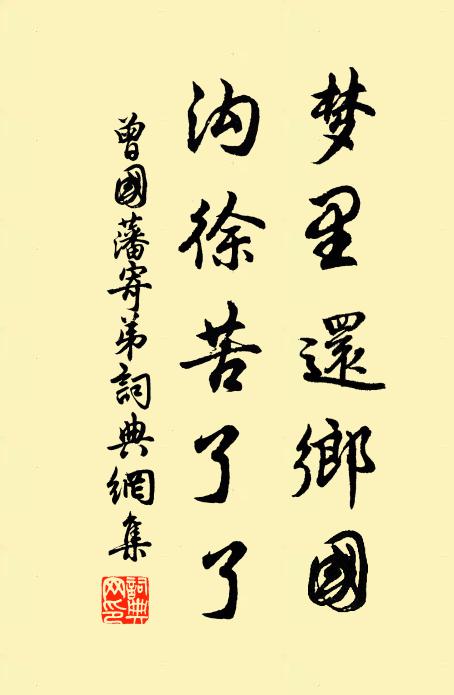 梦里還鄉國
沟徐苦了了
曾國藩寄弟詞典網集
詞典网印